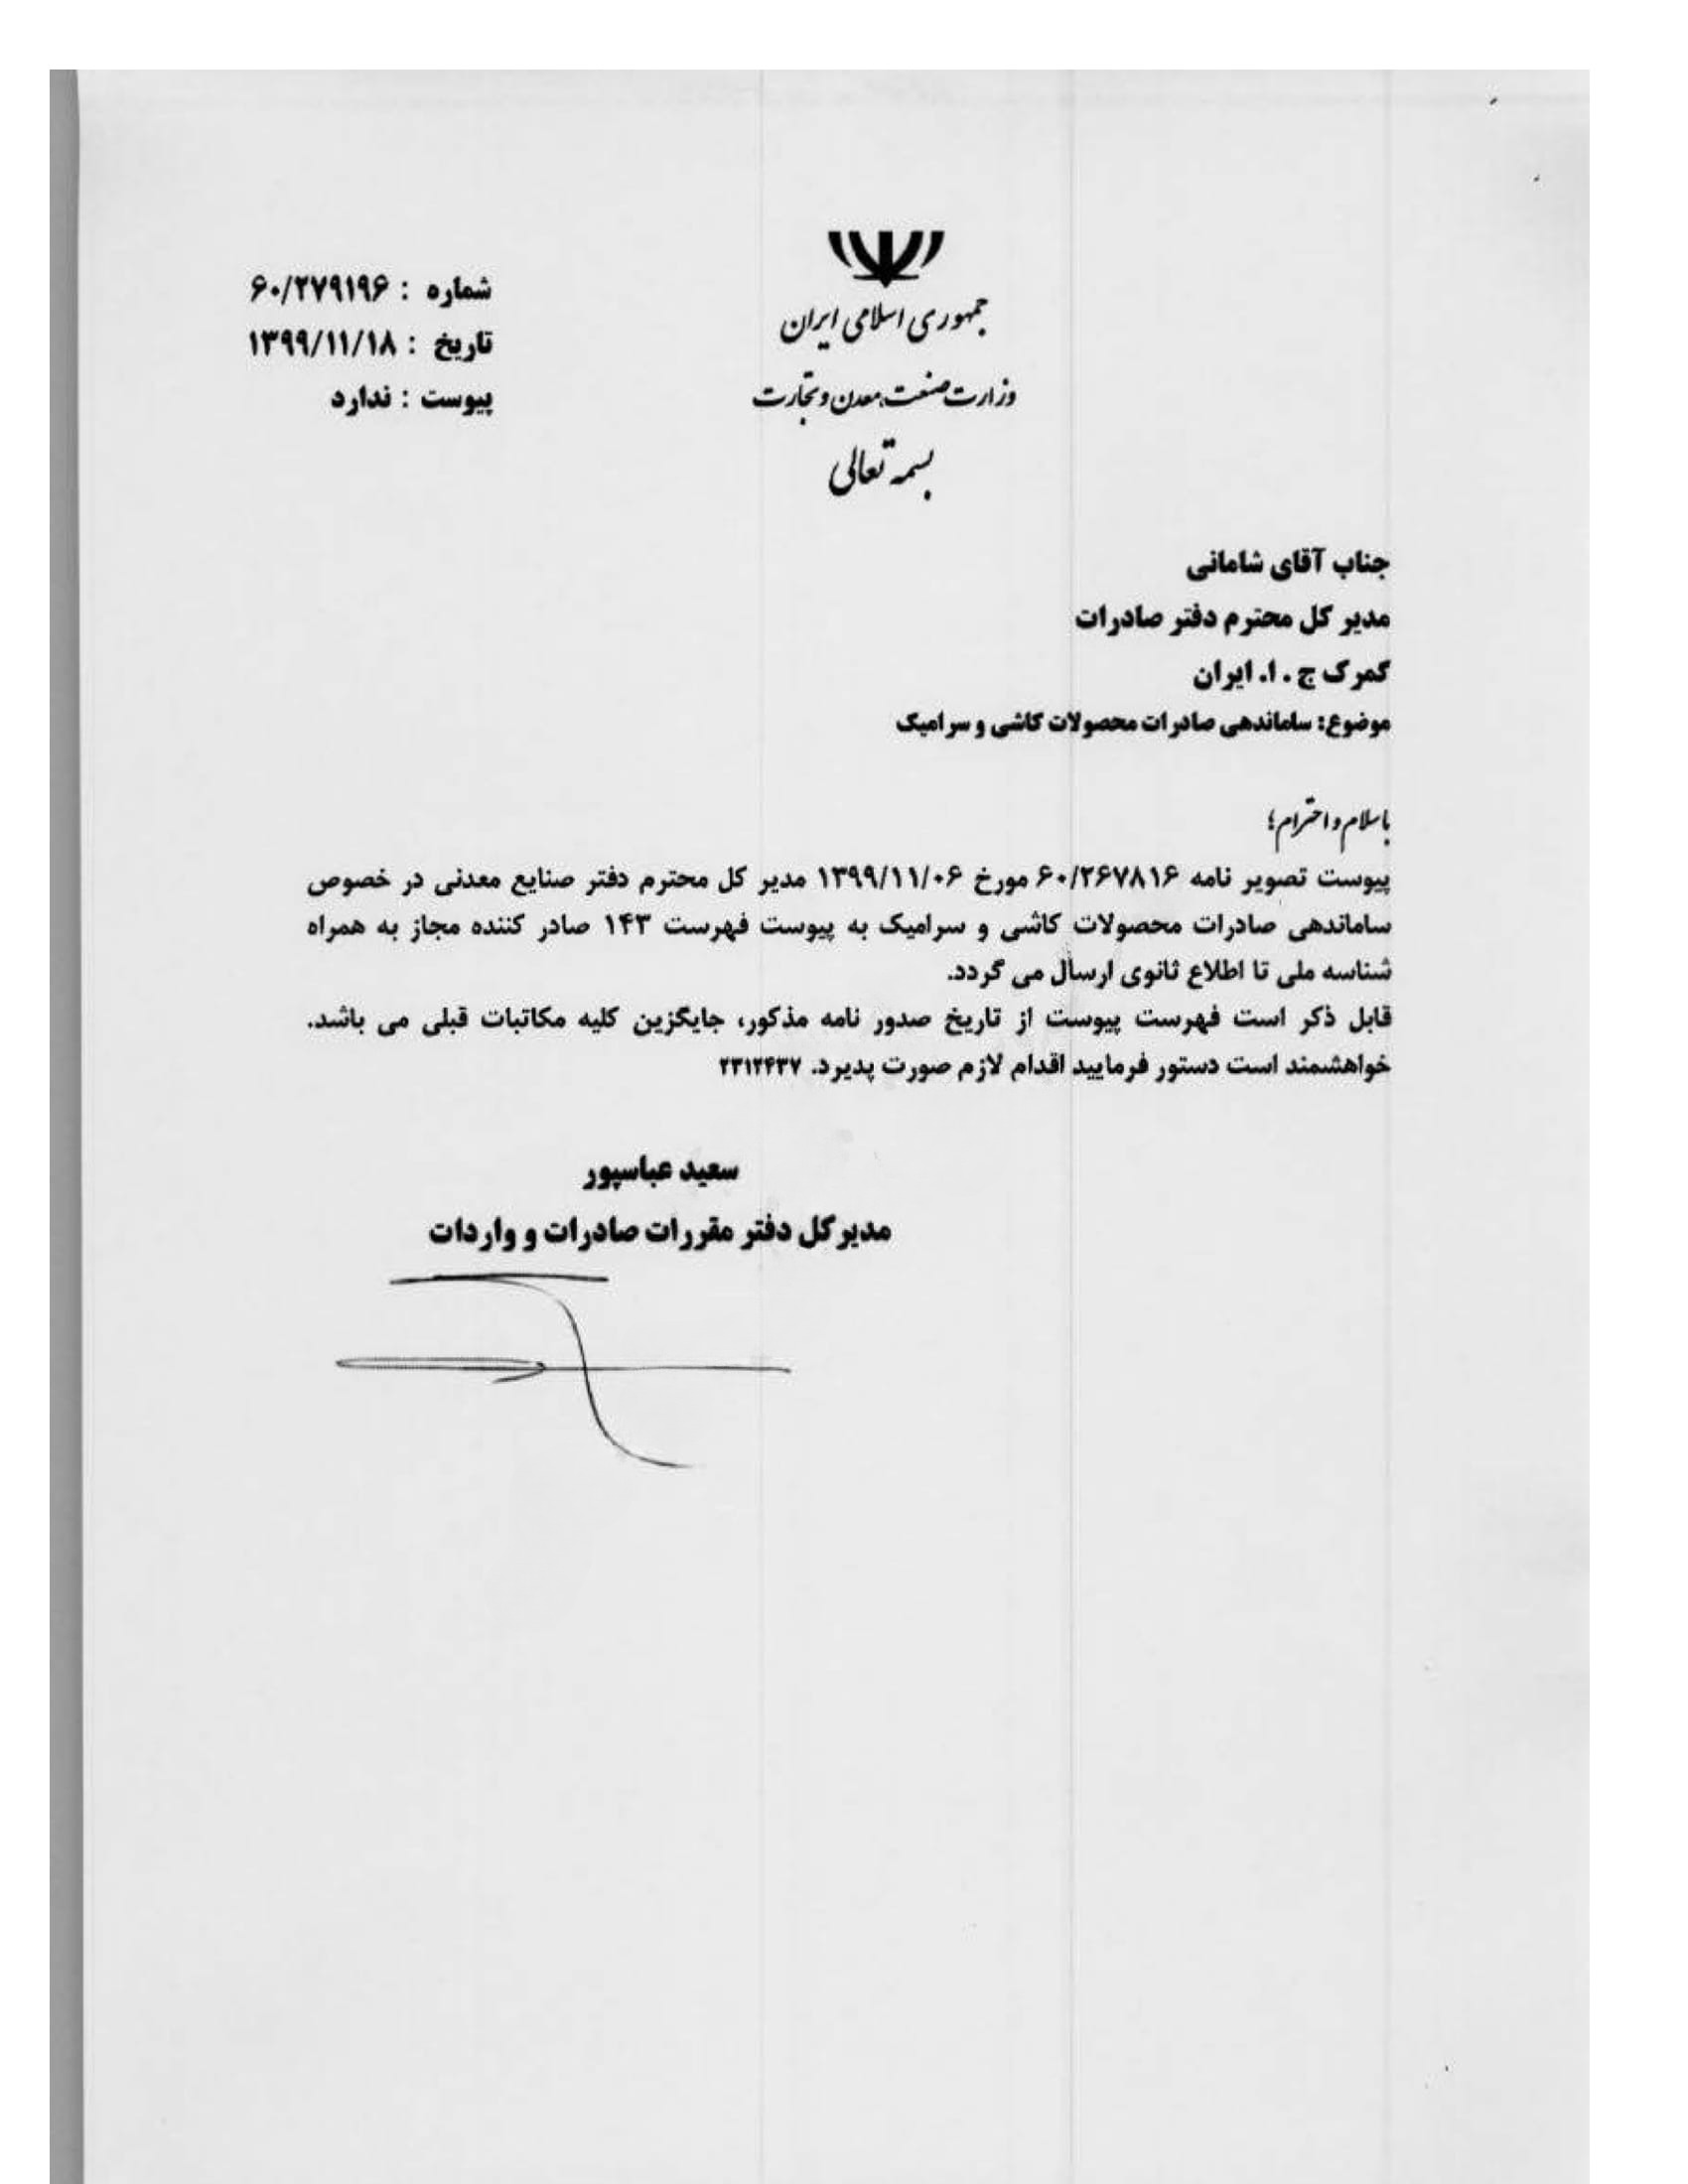 جمهوری اسلامی ایران
وزارت صنعت، معدن و تجارت
بسمه تعالی
شماره : ۶۰/۲۷۹۱۹۶
تاریخ : ۱۳۹۹/۱۱/۱۸
پیوست : ندارد
جناب آقای شامانی
مدیر کل محترم دفتر صادرات
گمرک ج . ا. ایران
موضوع: ساماندهی صادرات محصولات کاشی و سرامیک
با سلام و احترام؛
پیوست تصویر نامه ۶۰/۲۶۷۸۱۶ مورخ ۱۳۹۹/۱۱/۰۶ مدیر کل محترم دفتر صنایع معدنی در خصوص
ساماندهی صادرات محصولات کاشی و سرامیک به پیوست فهرست ۱۴۳ صادر کننده مجاز به همراه
شناسه ملی تا اطلاع ثانوی ارسال می گردد.
قابل ذکر است فهرست پیوست از تاریخ صدور نامه مذکور، جایگزین کلیه مکاتبات قبلی می باشد.
خواهشمند است دستور فرمایید اقدام لازم صورت پدیرد. ۲۳۱۲۴۳۷
سعید عباسپور
مدیرکل دفتر مقررات صادرات و واردات